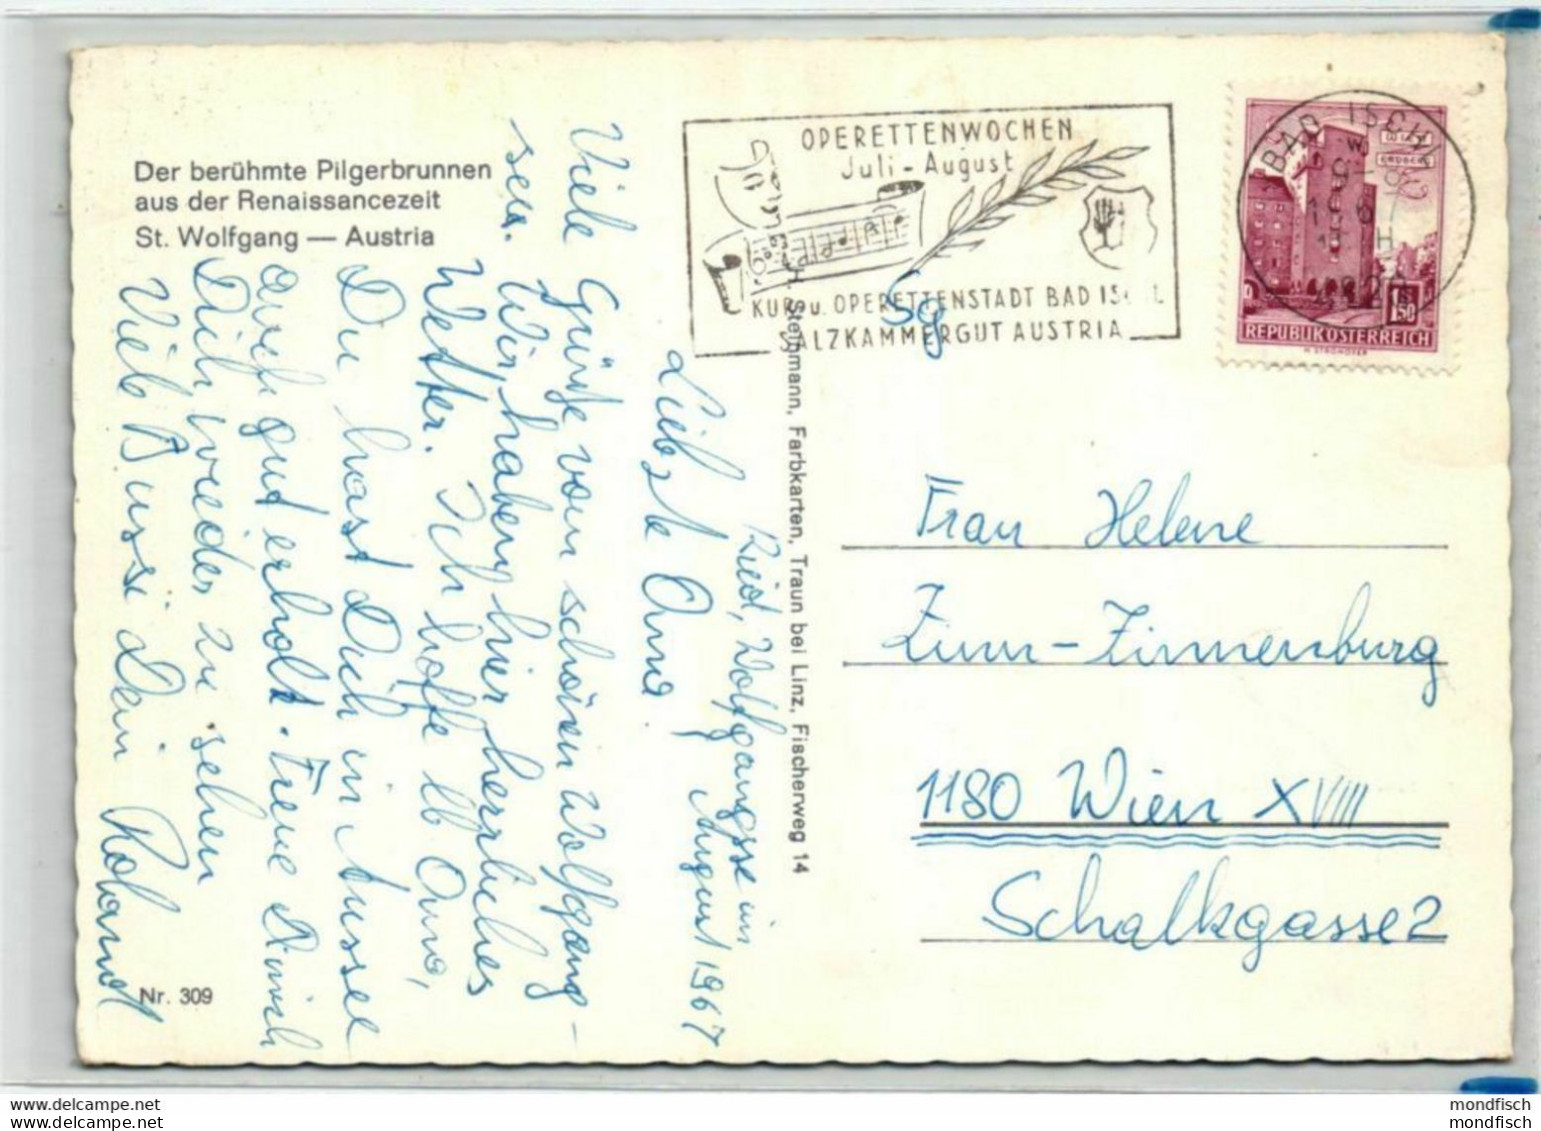 Der berühmte Pilgerbrunnen
aus der Renaissancezeit
St. Wolfgang — Austria
Ried, Wolfgangsee im
August 1967
Liebste Oma!
Viele Grüße vom schönen Wolfgang-
see. Wir haben hier herrliches
Wetter. Ich hoffe lb Oma,
Du hast Dich in Aussee
auch gut erholt. Freue mich
Dich wieder zu sehen
Viele Bussi Dein Roland
Nr. 309
H. Steinmann, Farbkarten, Traun bei Linz, Fischerweg 14
OPERETTENWOCHEN
Juli - August
KUR u. OPERETTENSTADT BAD ISCHL
SALZKAMMERGUT AUSTRIA
BAD ISCHL
1.50
REPUBLIK ÖSTERREICH
Frau Helene
Zunn-Zinnenburg
1180 Wien XVIII
Schalkgasse 2
delcampe.net
delcampe.net
mondfisch
mondfisch